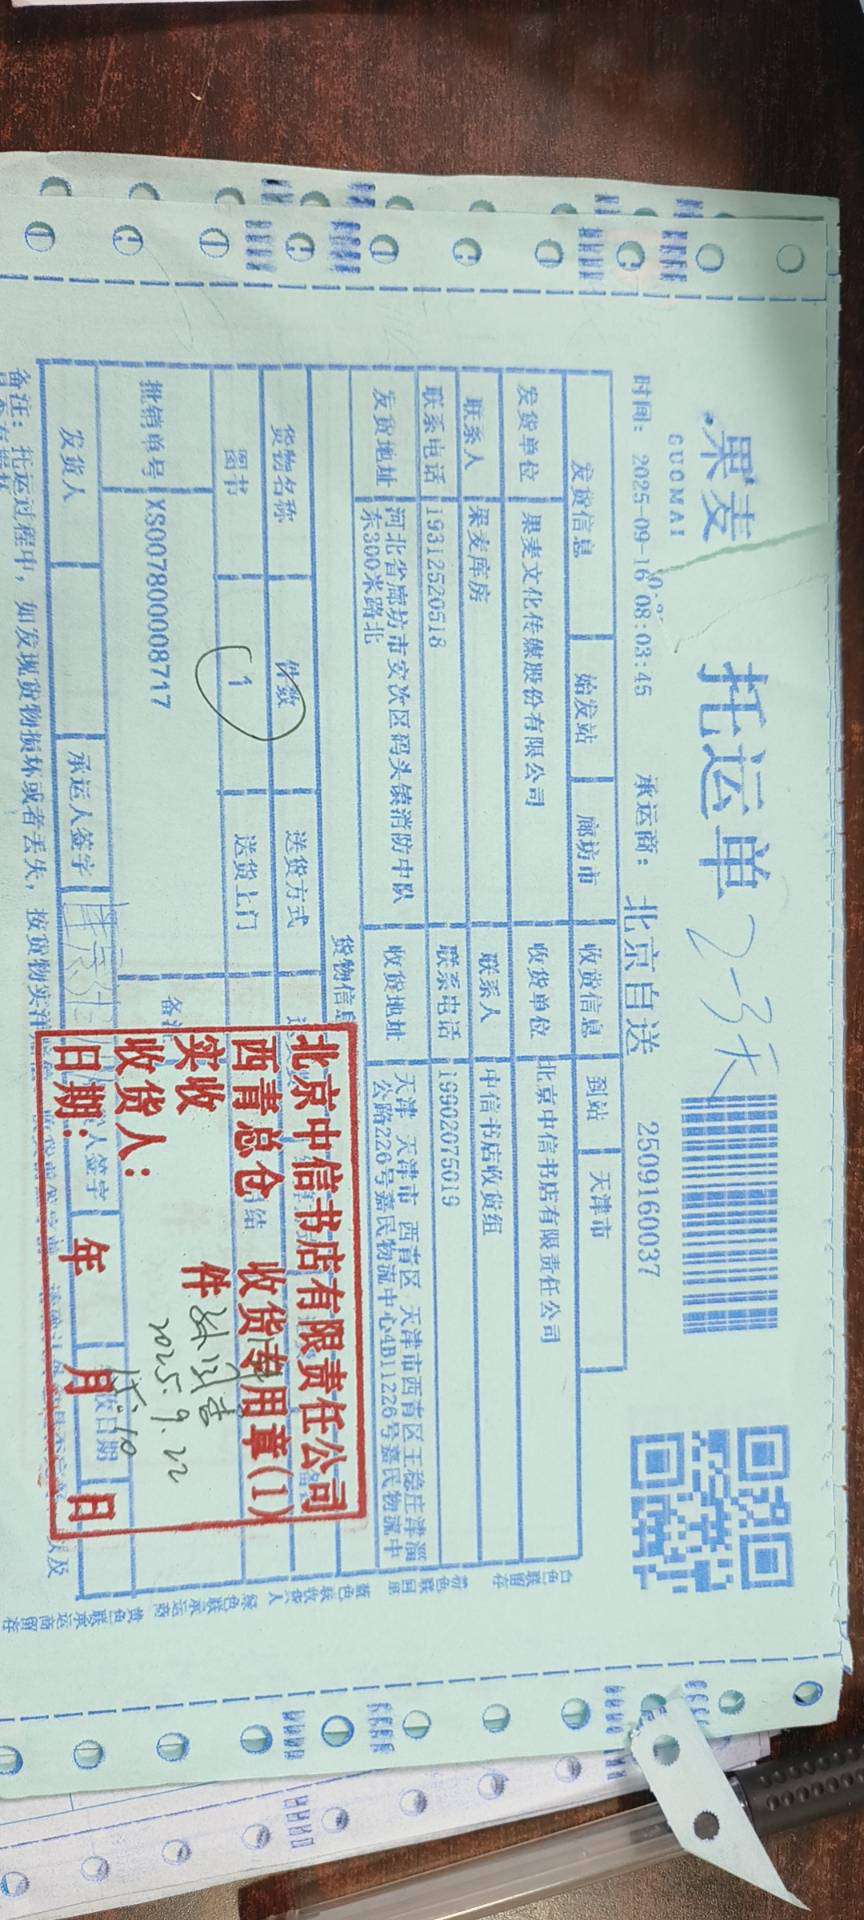 果麦
GUOMAI
托运单
2-3天
时间: 2025-09-16 08:03:45 承运商: 北京自送 2509160037
发货信息 始发站 廊坊市 收货信息 到站 天津市
发货单位 果麦文化传媒股份有限公司 收货单位 北京中信书店有限责任公司
联系人 果麦库房 联系人 中信书店收货组
联系电话 19312520518 联系电话 19902075019
发货地址 河北省廊坊市安次区码头镇消防中队东300米路北 收货地址 天津 天津市 西青区 天津市西青区王稳庄津淄公路226号嘉民物流中心4B11226号嘉民物流中
货物信息
货物名称 件数 送货方式
图书 1 送货上门
批销单号 XS007800008717
发货人 承运人签字 人签字 日期
备注: 托运过程中, 如发现货物损坏或者丢失, 按货物实
北京中信书店有限责任公司
西青总仓 收货专用章(1)
实收 件
收货人:
2025.9.22
日期: 年 月 日
白色联留存 粉色联回库 蓝色联收货人 绿色联承运商 黄色联承运商留存